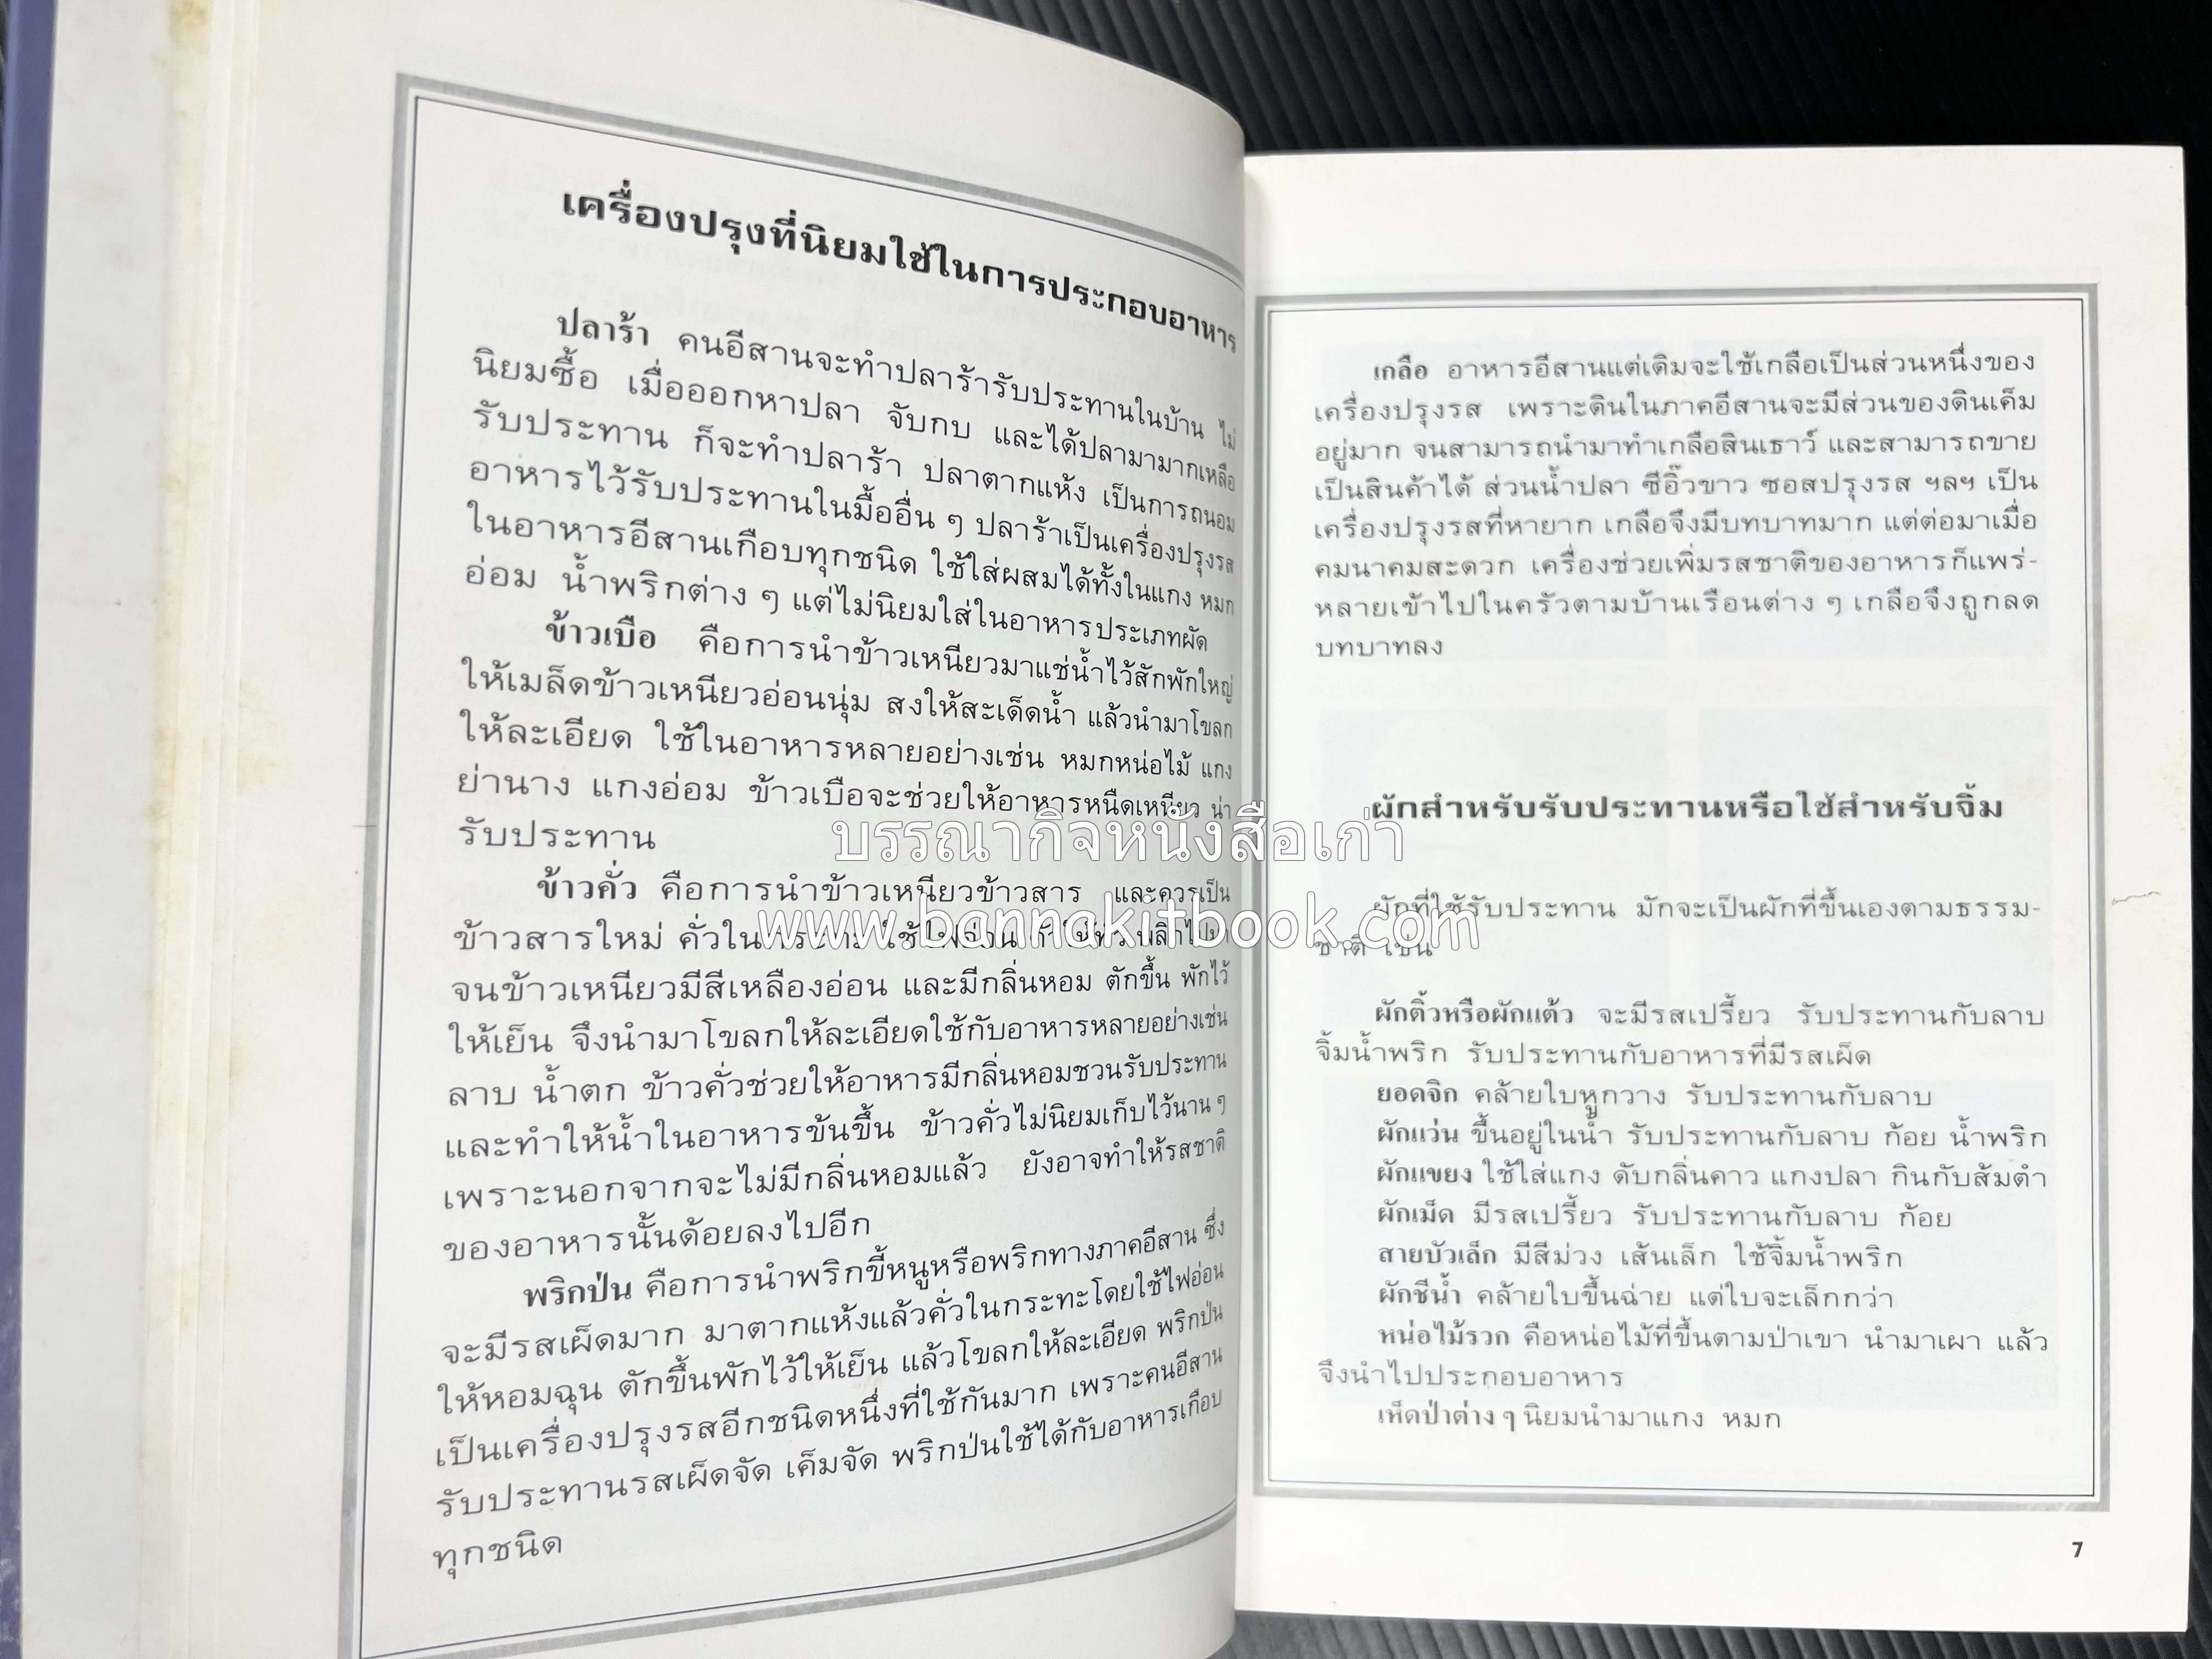 เครื่องปรุงที่นิยมใช้ในการประกอบอาหาร
ปลาร้า คนอีสานจะทำปลาร้ารับประทานในบ้าน ไม่
นิยมซื้อ เมื่อออกหาปลา จับกบ และได้ปลามามากเหลือ
รับประทาน ก็จะทำปลาร้า ปลาตากแห้ง เป็นการถนอม
อาหารไว้รับประทานในมื้ออื่น ๆ ปลาร้าเป็นเครื่องปรุงรส
ในอาหารอีสานเกือบทุกชนิด ใช้ใส่ผสมได้ทั้งในแกง หมก
อ่อม น้ำพริกต่าง ๆ แต่ไม่นิยมใส่ในอาหารประเภทผัด
ข้าวเบือ คือการนำข้าวเหนียวมาแช่น้ำไว้สักพักใหญ่
ให้เมล็ดข้าวเหนียวอ่อนนุ่ม สงให้สะเด็ดน้ำ แล้วนำมาโขลก
ให้ละเอียด ใช้ในอาหารหลายอย่างเช่น หมกหน่อไม้ แกง
ย่านาง แกงอ่อม ข้าวเบือจะช่วยให้อาหารหนืดเหนียว น่า
รับประทาน
ข้าวคั่ว คือการนำข้าวเหนียวข้าวสาร และควรเป็น
ข้าวสารใหม่ คั่วในกระทะ ใช้ไฟอ่อน
จนข้าวเหนียวมีสีเหลืองอ่อน และมีกลิ่นหอม ตักขึ้น พักไว้
ให้เย็น จึงนำมาโขลกให้ละเอียดใช้กับอาหารหลายอย่างเช่น
ลาบ น้ำตก ข้าวคั่วช่วยให้อาหารมีกลิ่นหอมชวนรับประทาน
และทำให้น้ำในอาหารข้นขึ้น ข้าวคั่วไม่นิยมเก็บไว้นาน ๆ
เพราะนอกจากจะไม่มีกลิ่นหอมแล้ว ยังอาจทำให้รสชาติ
ของอาหารนั้นด้อยลงไปอีก
พริกป่น คือการนำพริกขี้หนูหรือพริกทางภาคอีสาน ซึ่ง
จะมีรสเผ็ดมาก มาตากแห้งแล้วคั่วในกระทะโดยใช้ไฟอ่อน
ให้หอมฉุน ตักขึ้นพักไว้ให้เย็น แล้วโขลกให้ละเอียด พริกป่น
เป็นเครื่องปรุงรสอีกชนิดหนึ่งที่ใช้กันมาก เพราะคนอีสาน
รับประทานรสเผ็ดจัด เค็มจัด พริกป่นใช้ได้กับอาหารเกือบ
ทุกชนิด
เกลือ อาหารอีสานแต่เดิมจะใช้เกลือเป็นส่วนหนึ่งของ
เครื่องปรุงรส เพราะดินในภาคอีสานจะมีส่วนของดินเค็ม
อยู่มาก จนสามารถนำมาทำเกลือสินเธาว์ และสามารถขาย
เป็นสินค้าได้ ส่วนน้ำปลา ซีอิ๊วขาว ซอสปรุงรส ฯลฯ เป็น
เครื่องปรุงรสที่หายาก เกลือจึงมีบทบาทมาก แต่ต่อมาเมื่อ
คมนาคมสะดวก เครื่องช่วยเพิ่มรสชาติของอาหารก็แพร่-
หลายเข้าไปในครัวตามบ้านเรือนต่าง ๆ เกลือจึงถูกลด
บทบาทลง
ผักสำหรับรับประทานหรือใช้สำหรับจิ้ม
ผักที่ใช้รับประทาน มักจะเป็นผักที่ขึ้นเองตามธรรม-
ชาติ เช่น
ผักติ้วหรือผักแต้ว จะมีรสเปรี้ยว รับประทานกับลาบ
จิ้มน้ำพริก รับประทานกับอาหารที่มีรสเผ็ด
ยอดจิก คล้ายใบหูกวาง รับประทานกับลาบ
ผักแว่น ขึ้นอยู่ในน้ำ รับประทานกับลาบ ก้อย น้ำพริก
ผักแขยง ใช้ใส่แกง ดับกลิ่นคาว แกงปลา กินกับส้มตำ
ผักเม็ด มีรสเปรี้ยว รับประทานกับลาบ ก้อย
สายบัวเล็ก มีสีม่วง เส้นเล็ก ใช้จิ้มน้ำพริก
ผักชีน้ำ คล้ายใบขึ้นฉ่าย แต่ใบจะเล็กกว่า
หน่อไม้รวก คือหน่อไม้ที่ขึ้นตามป่าเขา นำมาเผา แล้ว
จึงนำไปประกอบอาหาร
เห็ดป่าต่าง ๆ นิยมนำมาแกง หมก
7
บรรณากิจหนังสือเก่า
www.bannakitbook.com